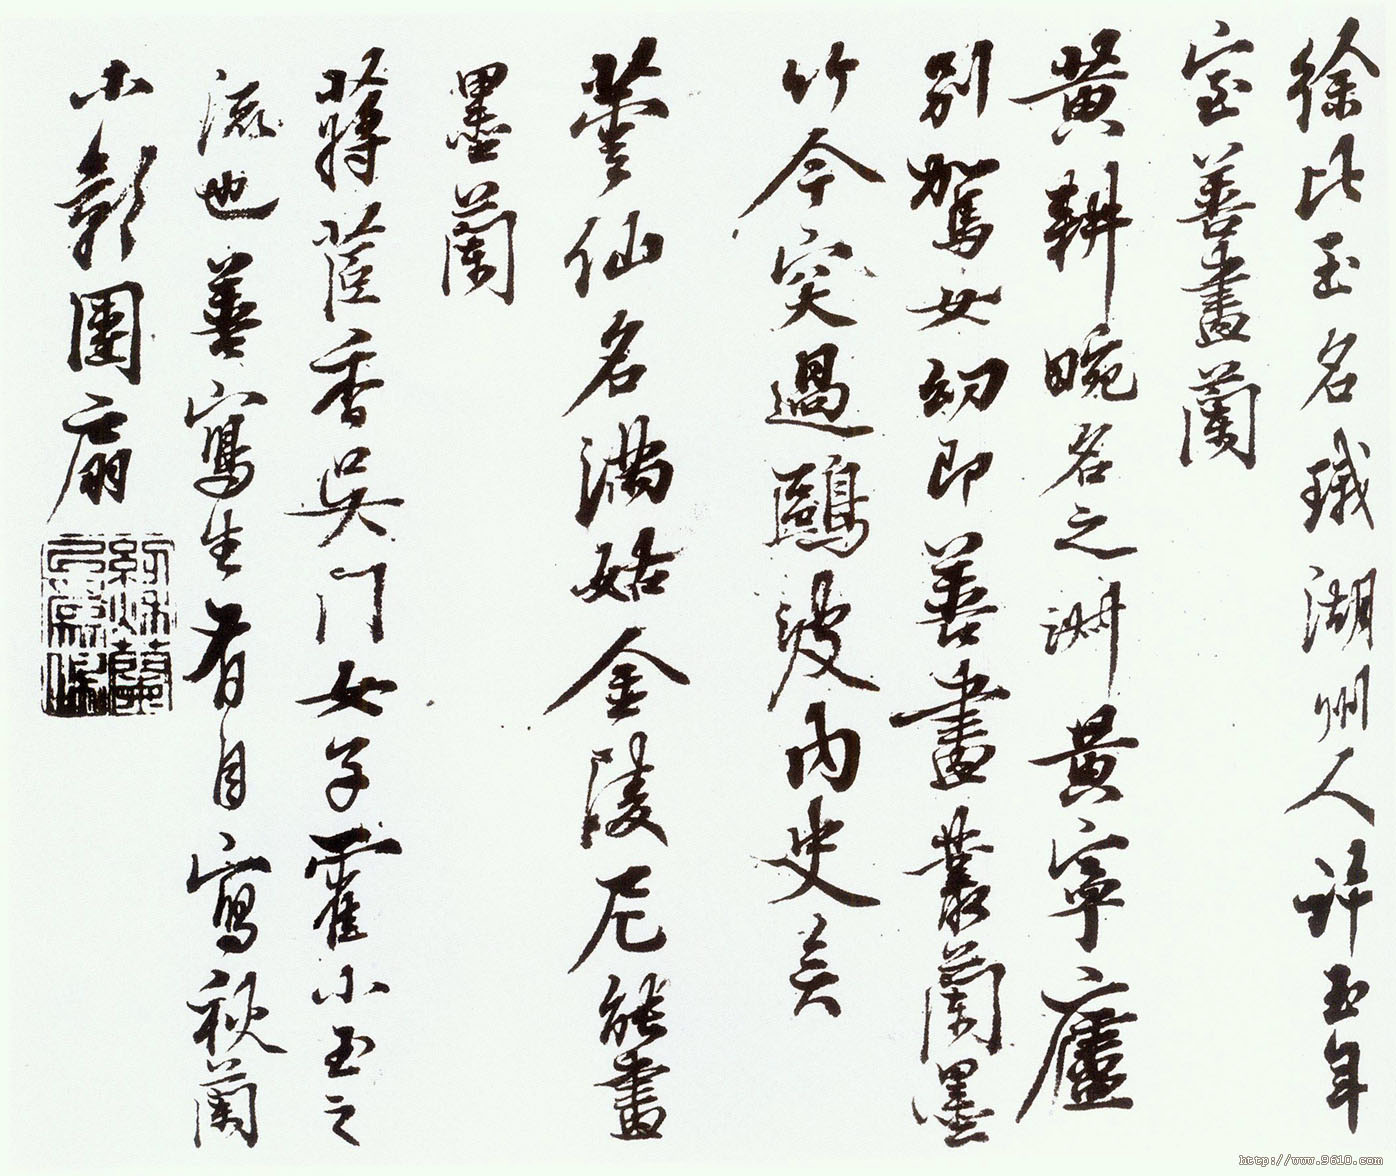 徐比玉名璣湖州人許玉年
室善畫蘭
黃耕畹名之淑黃寧廬
別駕女幼即善畫叢蘭墨
竹今突過鷗波內史矣
蕓仙名滿姑金陵尼能畫
墨蘭
蔣茝香吳門女子霍小玉之
流也善寫生有自寫秋蘭
小影團扇
http://www.9610.com